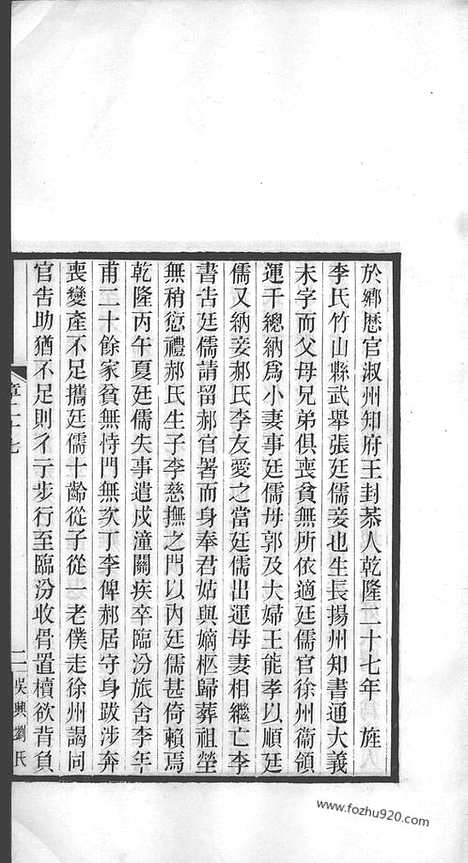 於鄉歷官淑州知府王封恭人乾隆二十七年 旌
李氏竹山縣武舉張廷儒妾也生長揚州知書通大義
未字而父母兄弟俱喪貧無所依適廷儒官徐州衞領
運千總納爲小妻事廷儒母郭及大婦王能孝以順廷
儒又納妾郝氏李友愛之當廷儒出運母妻相繼亡李
書吿廷儒請留郝官署而身奉君姑與嫡柩歸葬祖塋
無稍愆禮郝氏生子李慈撫之門以內廷儒甚倚賴焉
乾隆丙午夏廷儒失事遣戍潼關疾卒臨汾旅舍李年
甫二十餘家貧無恃門無次丁李俾郝居守身跋涉奔
喪變產不足攜廷儒十齡從子從一老僕走徐州謁同
官吿助猶不足則彳亍步行至臨汾收骨置櫝欲背負
章二十七
二
吳興劉氏
www.fozhu920.com